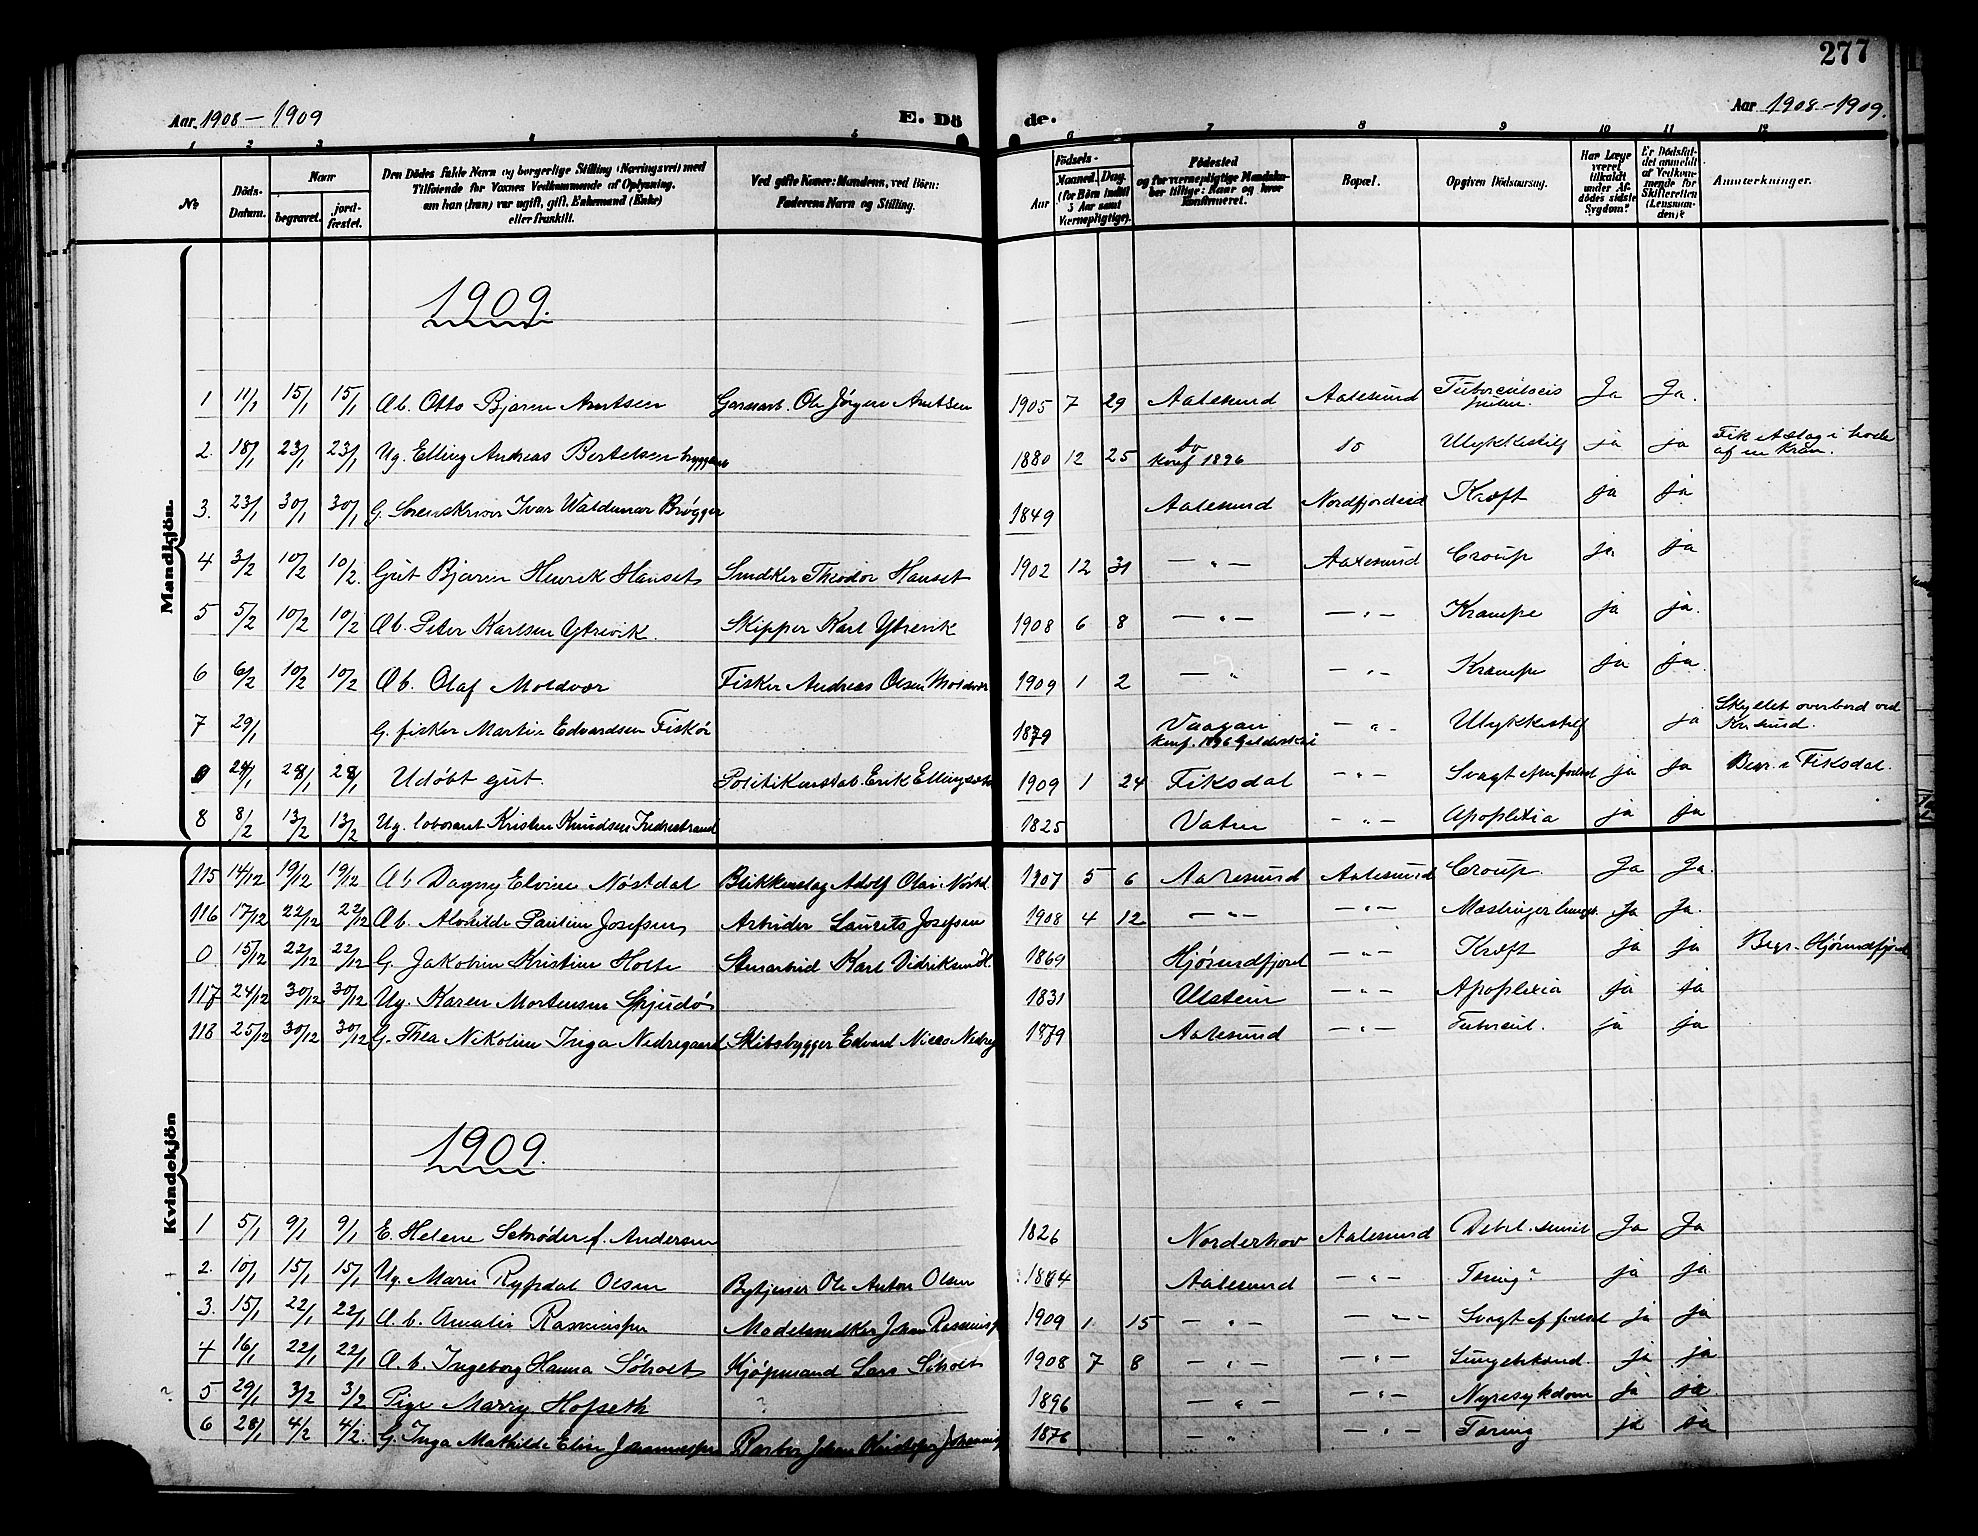 277
Aar 1908 – 1909
E. Dö de.
Aar 1908 – 1909.
1 2 3 4 5 6 7 8 9 10 11 12
No
Döds-Datum.
Naar begravet. jordfæstet.
Den Dödes fulde Navn og borgerlige Stilling (Næringsvei) med
Tilföiende for Voxnes Vedkommende af Oplysning,
om han (hun) var ugift, gift, Enkemand (Enke)
eller fraskilt.
Ved gifte Koner: Mandens, ved Börn:
Faderens Navn og Stilling.
Födsels-
Aar Maaned. Dag
(for Börn indtil
5 Aar samt
Værnepligtige).
Födested
og for værnepligtige Mandskaber tillige: Naar og hvor
konfirmeret.
Bopæl.
Opgiven Dödsaarsag.
Har Læge
været
tilkaldt
under Afdödes sidste
Sygdom?
Er Dödsfaldet anmeldt
af Vedkommende for
Skifteretten
(Lensmanden)?
Anmærkninger.
Mandkjön.
1909.
1 11/1 15/1 15/1 Æb. Otto Bjarne Arntsen Ole Jörgen Arntsen 1905 7 29 Aalesund Aalesund Tuberculosis Ja Ja.
2. 18/1 23/1 23/1 Ug. Elling Andreas Bertelsen 1880 12 25 do Konf 1896 do Ulykkestilf ja ja Fik et Slag i hode af en Kran.
3. 23/1 30/1 30/1 G. Sorenskriver Ivar Waldemar Brøgger 1849 Aalesund Nordfjordeid Kræft ja ja
4 3/2 10/2 10/2. Gut Bjarne Henrik Hanset Sndker Theodor Hanset 1902 12 31 — " — Aalesund Croup ja ja
5 5/2 10/2 10/2 Æb. Peter Karlsen Ytrevik. Skipper Karl Ytrevik 1908 6 8 — " — — " — Krampe ja ja.
6 6/2 10/2 10/2 Æb. Olaf Moldvær Fisker Andreas Olsen Moldvær 1909 1 2 — " — " — Krampe ja ja.
7 29/1 G. fisker Martin Edvardsen Fiskø 1879 Vaagan Konf. 1896 — " — Ulykkestilf ja Skyllet overbord ved Kr.sund.
0 24/1 28/1 28/1 Udøbt gut. Politikonstab. Erik Ellingsæter 1909 1 24 Fiksdal — " — Svagt efter fødsel ja ja Begr. i Fiksdal.
8 8/2 13/2 13/2 Ug. Kristen Knudsen Indrestrand 1825 Vatne — " — Apoplexia ja ja
Kvindekjön
115 14/12 19/12 19/12 Æb Dagny Elvine Nøstdal Blikkenslag Adolf Olai Nöstd. 1907 5 6 Aalesund Aalesund Croup. Ja Ja.
116 17/12 22/12 22/12 Æb. Alvhilde Pauline Josefsen Arbeider Laurits Josefsen 1908 4 12 — " — — " — Mæslinger Ja Ja.
0 15/12 22/12 22/12 G. Jakobine Kristine Holte Stenarbeid Karl Vidriksen H. 1869 Hjørundfjord — " — Kræft ja ja Begr. Hjørundfjord
117 24/12 30/12 30/12 Ug. Karen Mortensen 1831 Ulstein — " — Apoplexia ja ja
118 25/12 30/12 30/12 G. Thea Nikoline Inga Nedregaard Skibsbygger Edvard Nedreg 1879 Aalesund — " — Tubercul. ja ja
1909.
1 5/1 9/1 9/1 E. Helene Schrøder f. Andersen 1826 Norderhov Aalesund Debil. senil Ja Ja
2. 10/1 15/1 15/1 Ug. Marie Rypdal Olsen Bytjener Ole Anton Olsen 1884 Aalesund — " — Tæring? ja ja
3. 15/1 22/1 22/1 Æ. b. Amalie Rasmussen Modelsndker Johan Rasmuss 1909 1. 15 — " — — " — Svagt ef fødsel ja ja
4 16/1 22/1 22/1 Æ. b. Ingeborg Hanna Söholt Kjøpmand Lars Söholt 1908 7 8 — " — — " — Lungebetænd. ja ja
5 29/1 3/2 3/2 Pige Marry Hofseth " 1896 — " — — " — Nyresykdom ja ja
6 28/1 4/2 4/2. G. Inga Mathilde Elise Johannessen Barber Johan Kristofer Johanness 1876 — " — — " — Tæring ja ja